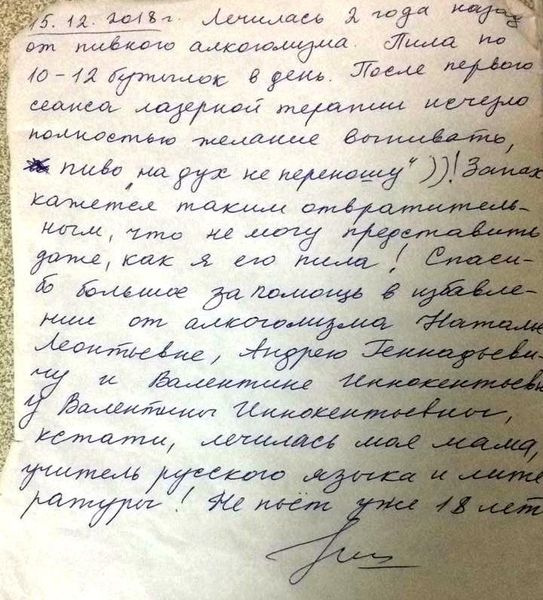 15.12.2018г. Лечилась 2 года назад
от пивного алкоголизма. Пила по
10-12 бутылок в день. После первого
сеанса лазерной терапии исчезло
полностью желание выпивать,
пиво „на дух не переношу“))! Запах
кажется таким отвратитель-
ным, что не могу представить
даже, как я его пила! Спаси-
бо большое за помощь в избавле-
нии от алкоголизма Наталье
Леонтьевне, Андрею Геннадьеви-
чу и Валентине Иннокентьевне
У Валентины Иннокентьевны,
кстати, лечилась моя мама,
учитель русского языка и лите
ратуры! Не пьёт уже 18 лет